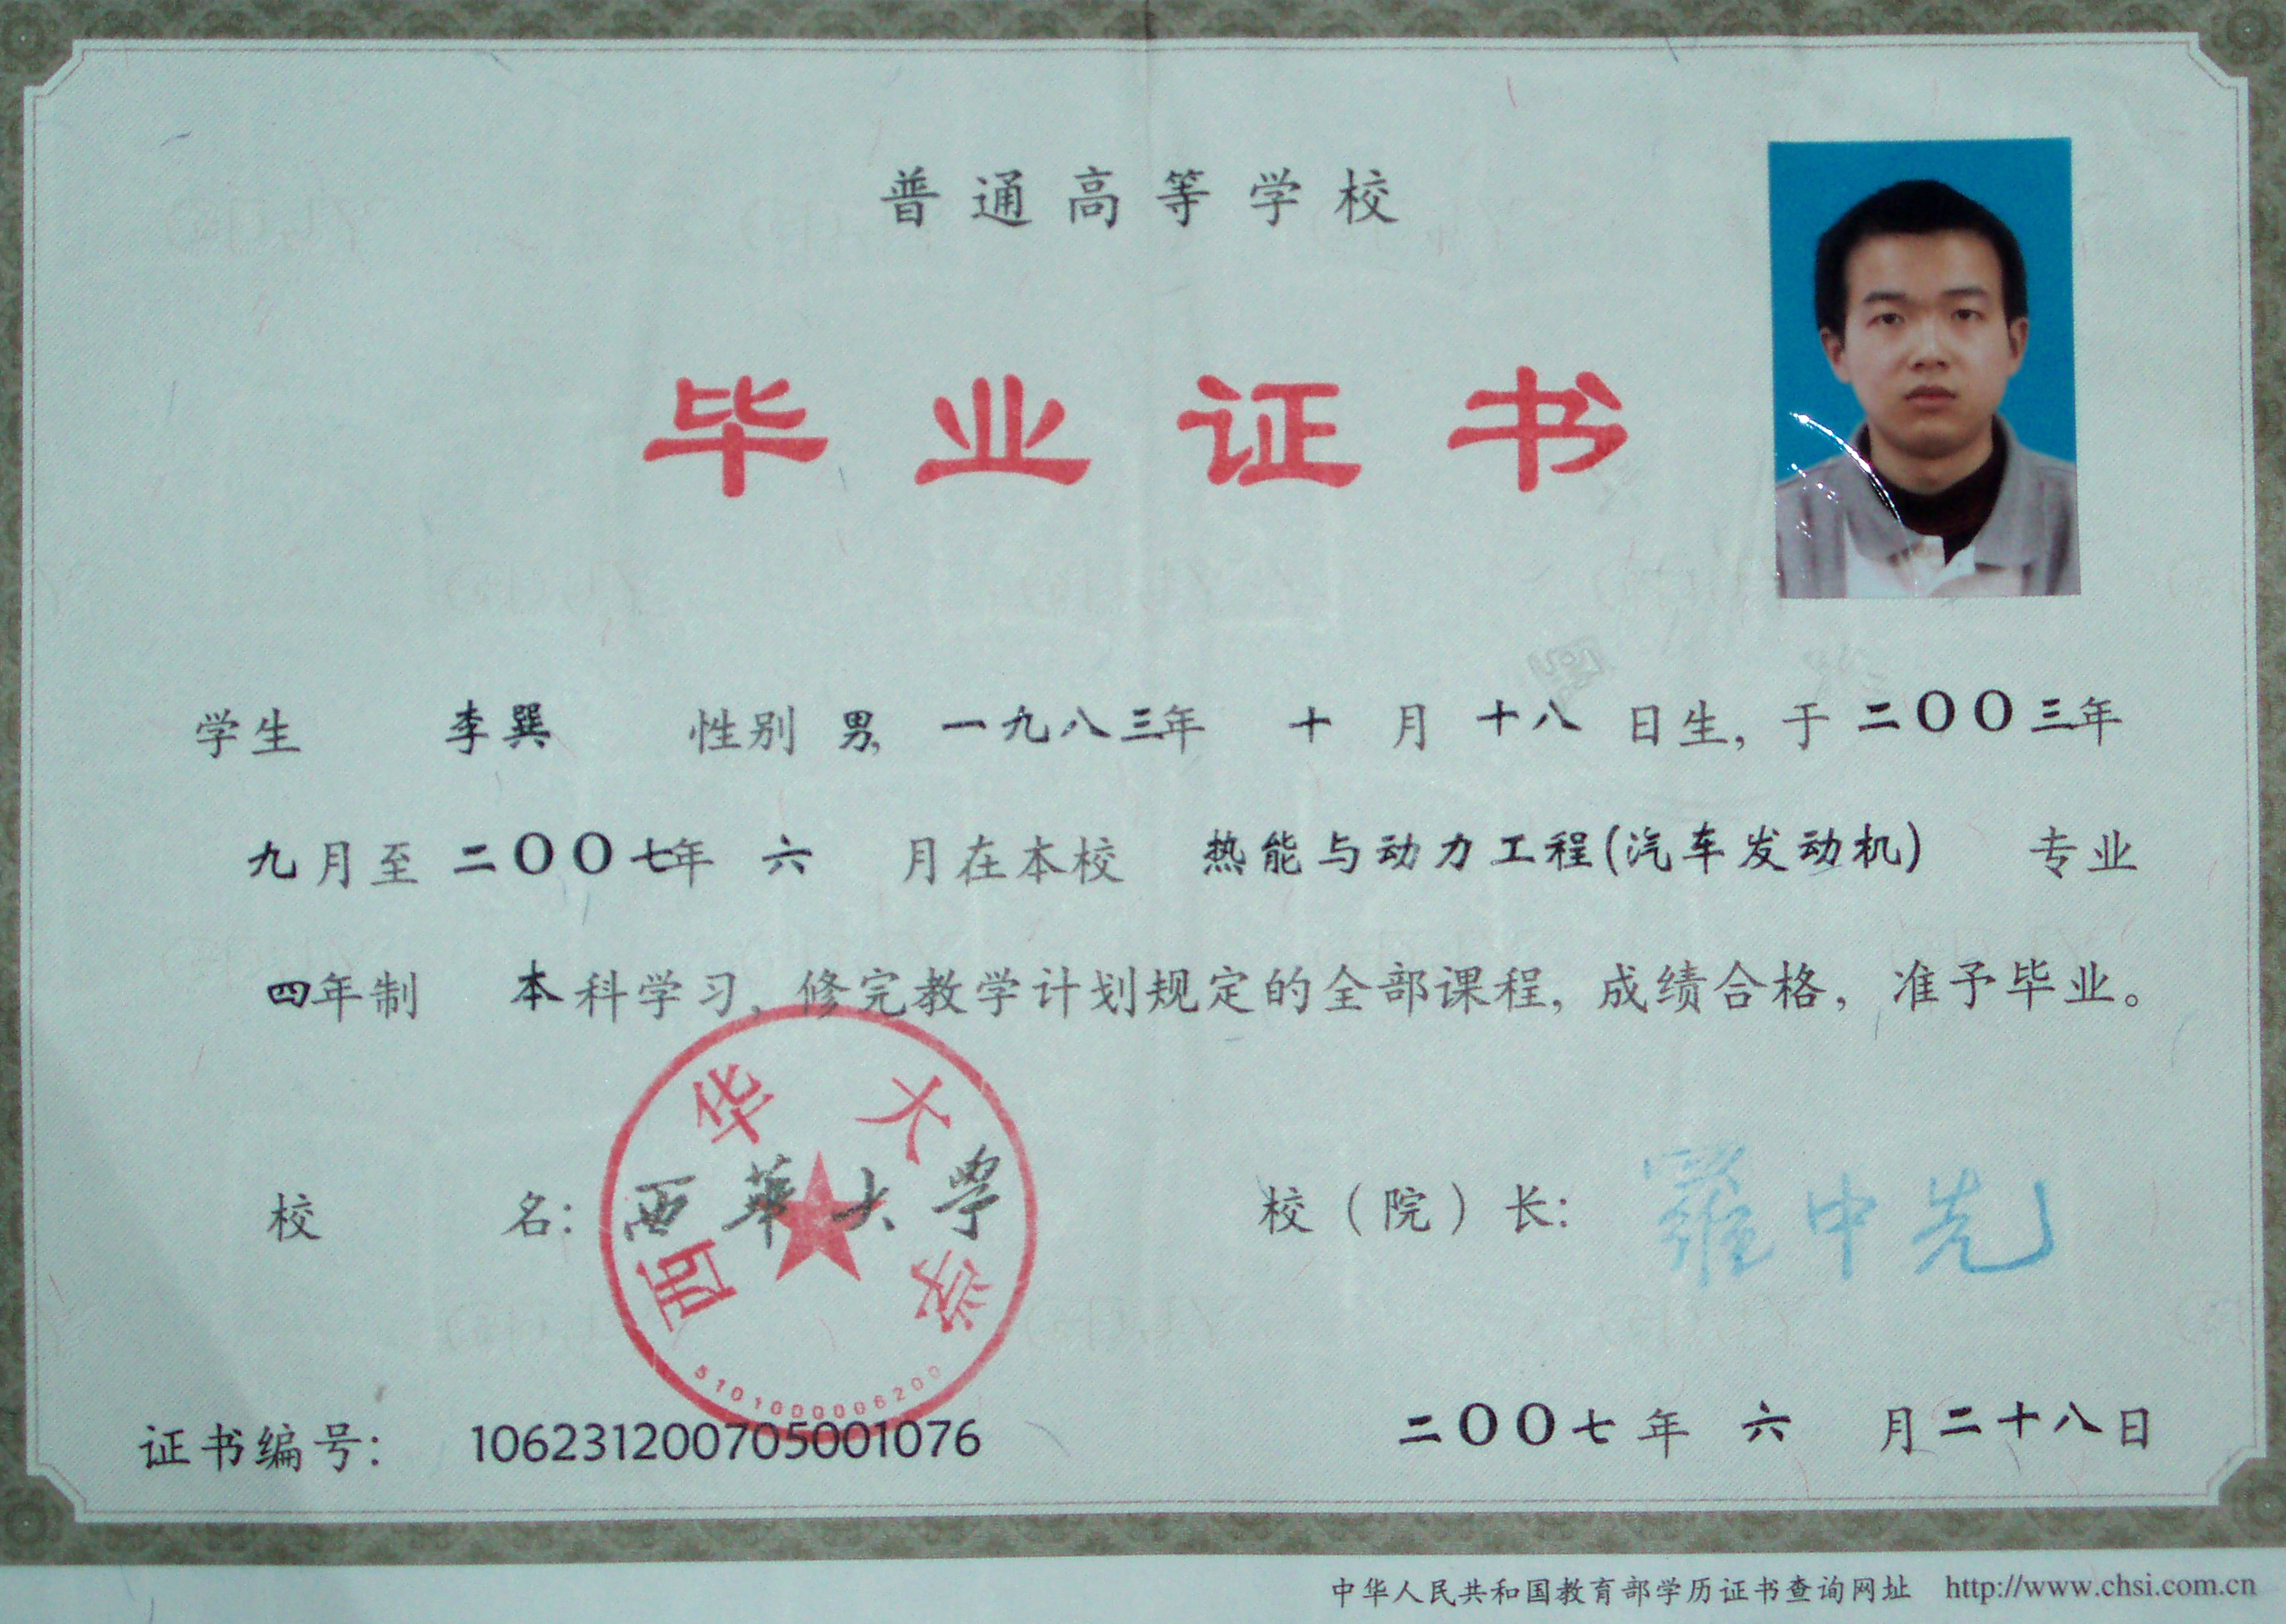 普通高等学校
毕业证书
学生 李巽 性别 男, 一九八三年 十 月 十八 日生, 于 二〇〇三年
九月至 二〇〇七年 六 月在本校 热能与动力工程(汽车发动机) 专业
四年制 本科学习, 修完教学计划规定的全部课程, 成绩合格, 准予毕业。
校 名: 西華大學
西华大学
5101000006200
校（院）长: 羅中先
证书编号: 106231200705001076
二〇〇七年 六 月二十八日
中华人民共和国教育部学历证书查询网址 http://www.chsi.com.cn